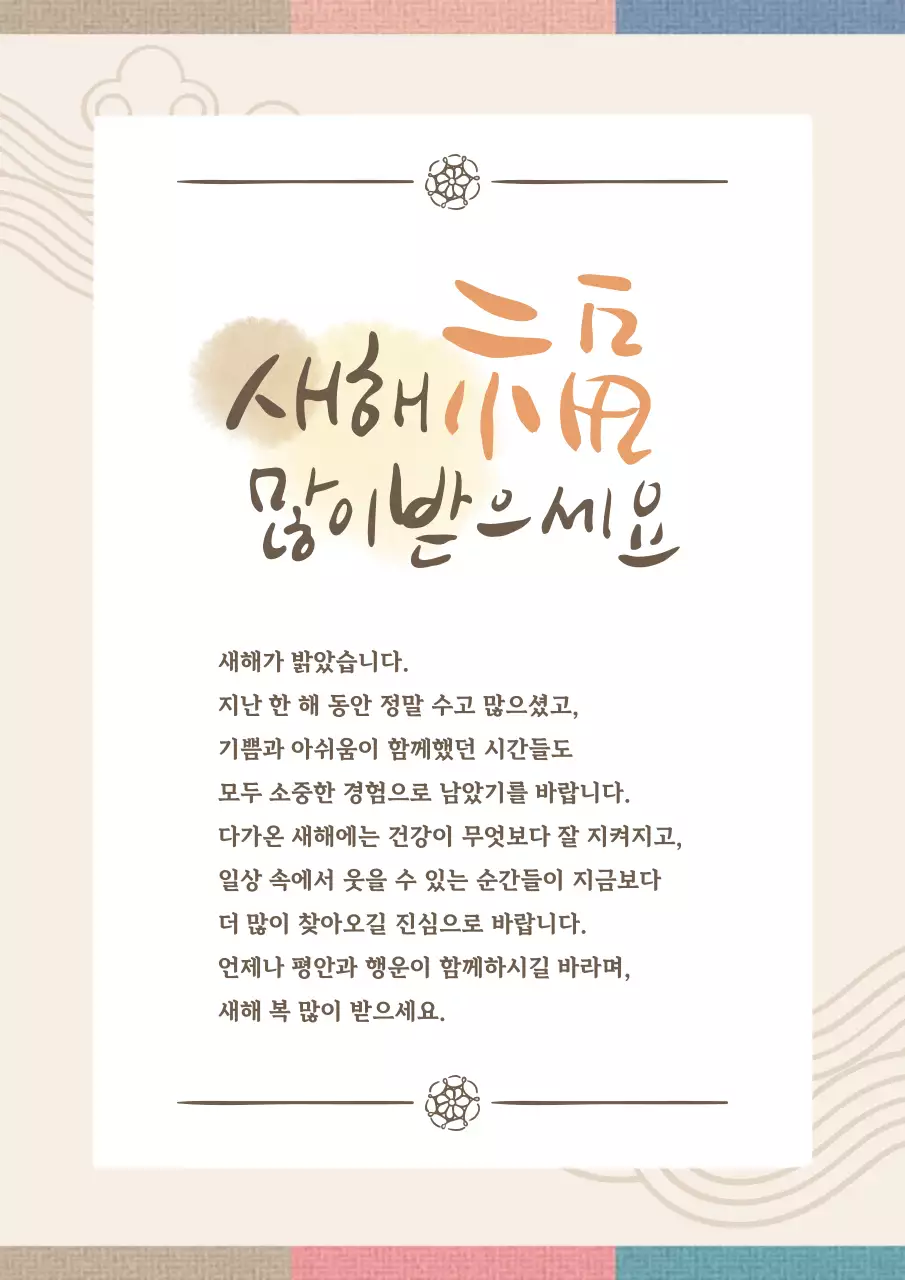 새해 福
많이 받으세요
새해가 밝았습니다.
지난 한 해 동안 정말 수고 많으셨고,
기쁨과 아쉬움이 함께했던 시간들도
모두 소중한 경험으로 남았기를 바랍니다.
다가온 새해에는 건강이 무엇보다 잘 지켜지고,
일상 속에서 웃을 수 있는 순간들이 지금보다
더 많이 찾아오길 진심으로 바랍니다.
언제나 평안과 행운이 함께하시길 바라며,
새해 복 많이 받으세요.